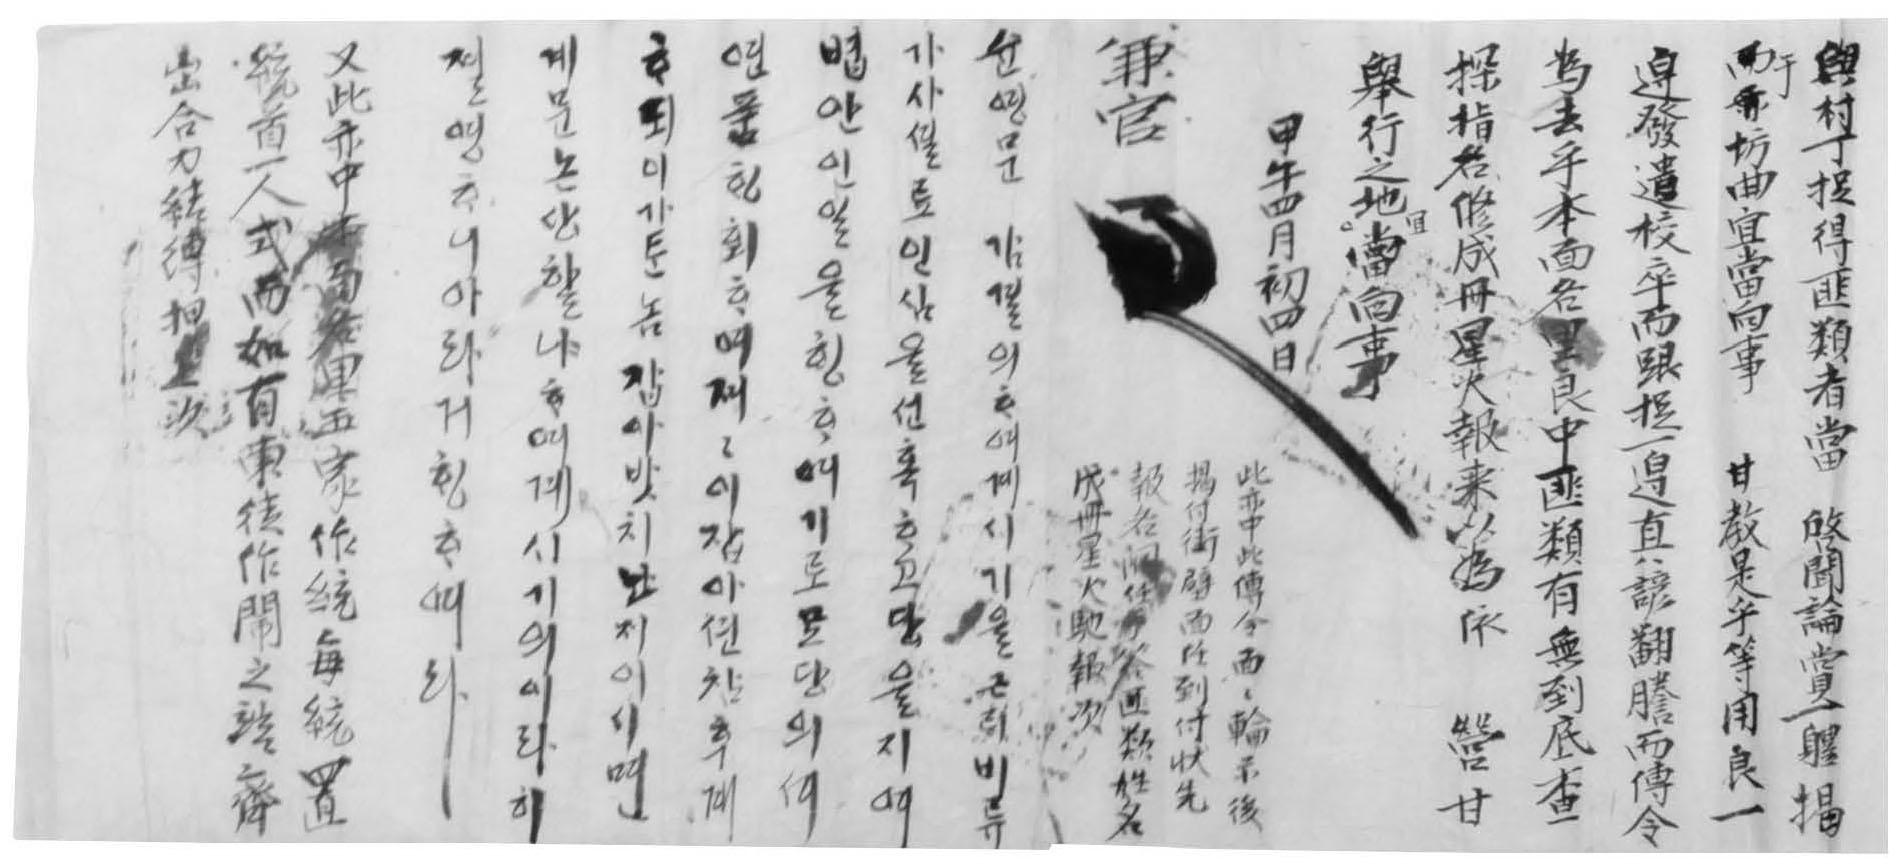 與村丁捉得匪類者當 啓聞論賞一體揭
于坊曲宜當向事 甘教是乎等用良一
邊發遣校卒而跟捉一邊直以諺翻謄而傳令
爲去乎本面各里良中匪類有無到底查
探指名修成冊星火報來以爲依 營甘
擧行之地宜當向事
甲午四月初四日
此亦中此傳令面〻輪示後
揭付街壁面任到付狀先
報各洞任
成冊星火馳報次
兼官
슌영문 감결의 ᄒᆞ여계시기을 근ᄅᆡ 비류
가 사셜로 인심을 션혹ᄒᆞ고 당을 지여
볍안인 일을 ᄒᆡᆼᄒᆞ여기로 모단의
ᄒᆞ여 이 잡아 후 계
ᄒᆞ되 이가튼 놈 잡아밧치난 지 이시면
계문논상할냐 ᄒᆞ여계시기의 이라히
젼영ᄒᆞ니 아라 거ᄒᆡᆼᄒᆞ여라
又此亦中 五家作統每統置
統首一人式而如有東徒作鬧之弊齊
出合力結縛捉上次